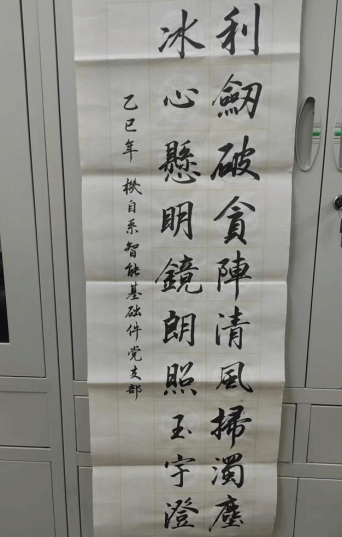 利劒破貪陣清風掃濁塵
冰心懸明鏡朗照玉宇澄
乙巳年 機自系智能基础件党支部